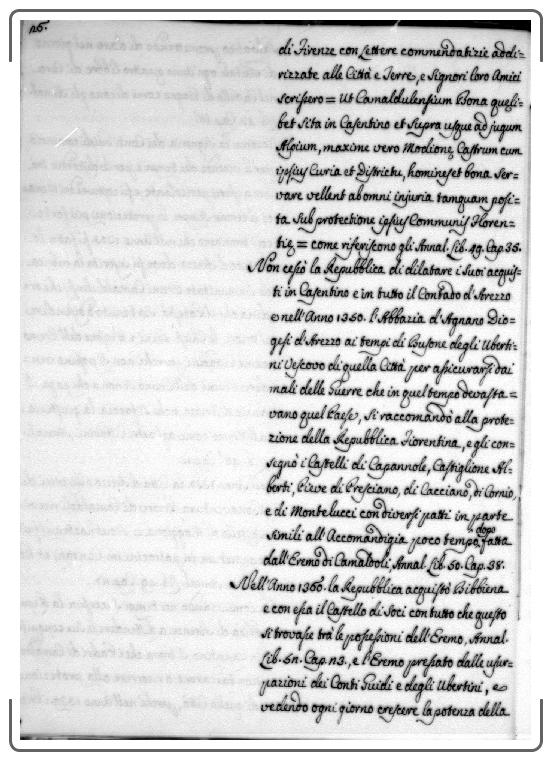 26.
di Firenze con Lettere commendatizie addi=
rizzate alle Città e Terre, e Signori loro Amici
scrissero = Ut Camaldulensium Bona queli=
bet Sita in Casentino et supra usque ad jugum
Alpium, maxime vero Moclione Castrum cum
ipsius Curia et Districtu, homines et bona ser=
vare vellent ab omni injuria tanquam posi=
ta sub protectione ipsius Communis Floren=
tię = come riferiscono gli Annal. Lib. 49. Cap. 35.
Non cessò la Repubblica di dilatare i suoi acquis=
ti in Casentino e in tutto il Contado d'Arezzo
e nell'Anno 1350. l'Abbazia d'Agnano Dio=
gesi d'Arezzo ai tempi di Busone degli Uberti=
ni Vescovo di quella Città per assicurarsi dai
mali delle Guerre che in quel tempo devasta=
vano quel Paese, si raccomandò alla prote=
zione della Repubblica Fiorentina, e gli con=
segnò i Castelli di Capannole, Castiglione Al=
berti, Pieve di Presciano, di Cacciano, di Cornio,
e di Montelucci con diversi patti in parte
simili all'Accomandigia poco tempo dopo fatta
dall'Eremo di Camaldoli, Annal. Lib. 50. Cap. 38.
Nell'Anno 1360. la Repubblica acquistò Bibbiena
e con essa il Castello di Soci con tutto che questo
si trovasse trà le possessioni dell'Eremo, Annal.
Lib. 51. Cap. 13., e l'Eremo pressato dalle usur=
pazioni dei Conti Guidi e degli Ubertini, e
vedendo ogni giorno crescere la potenza della